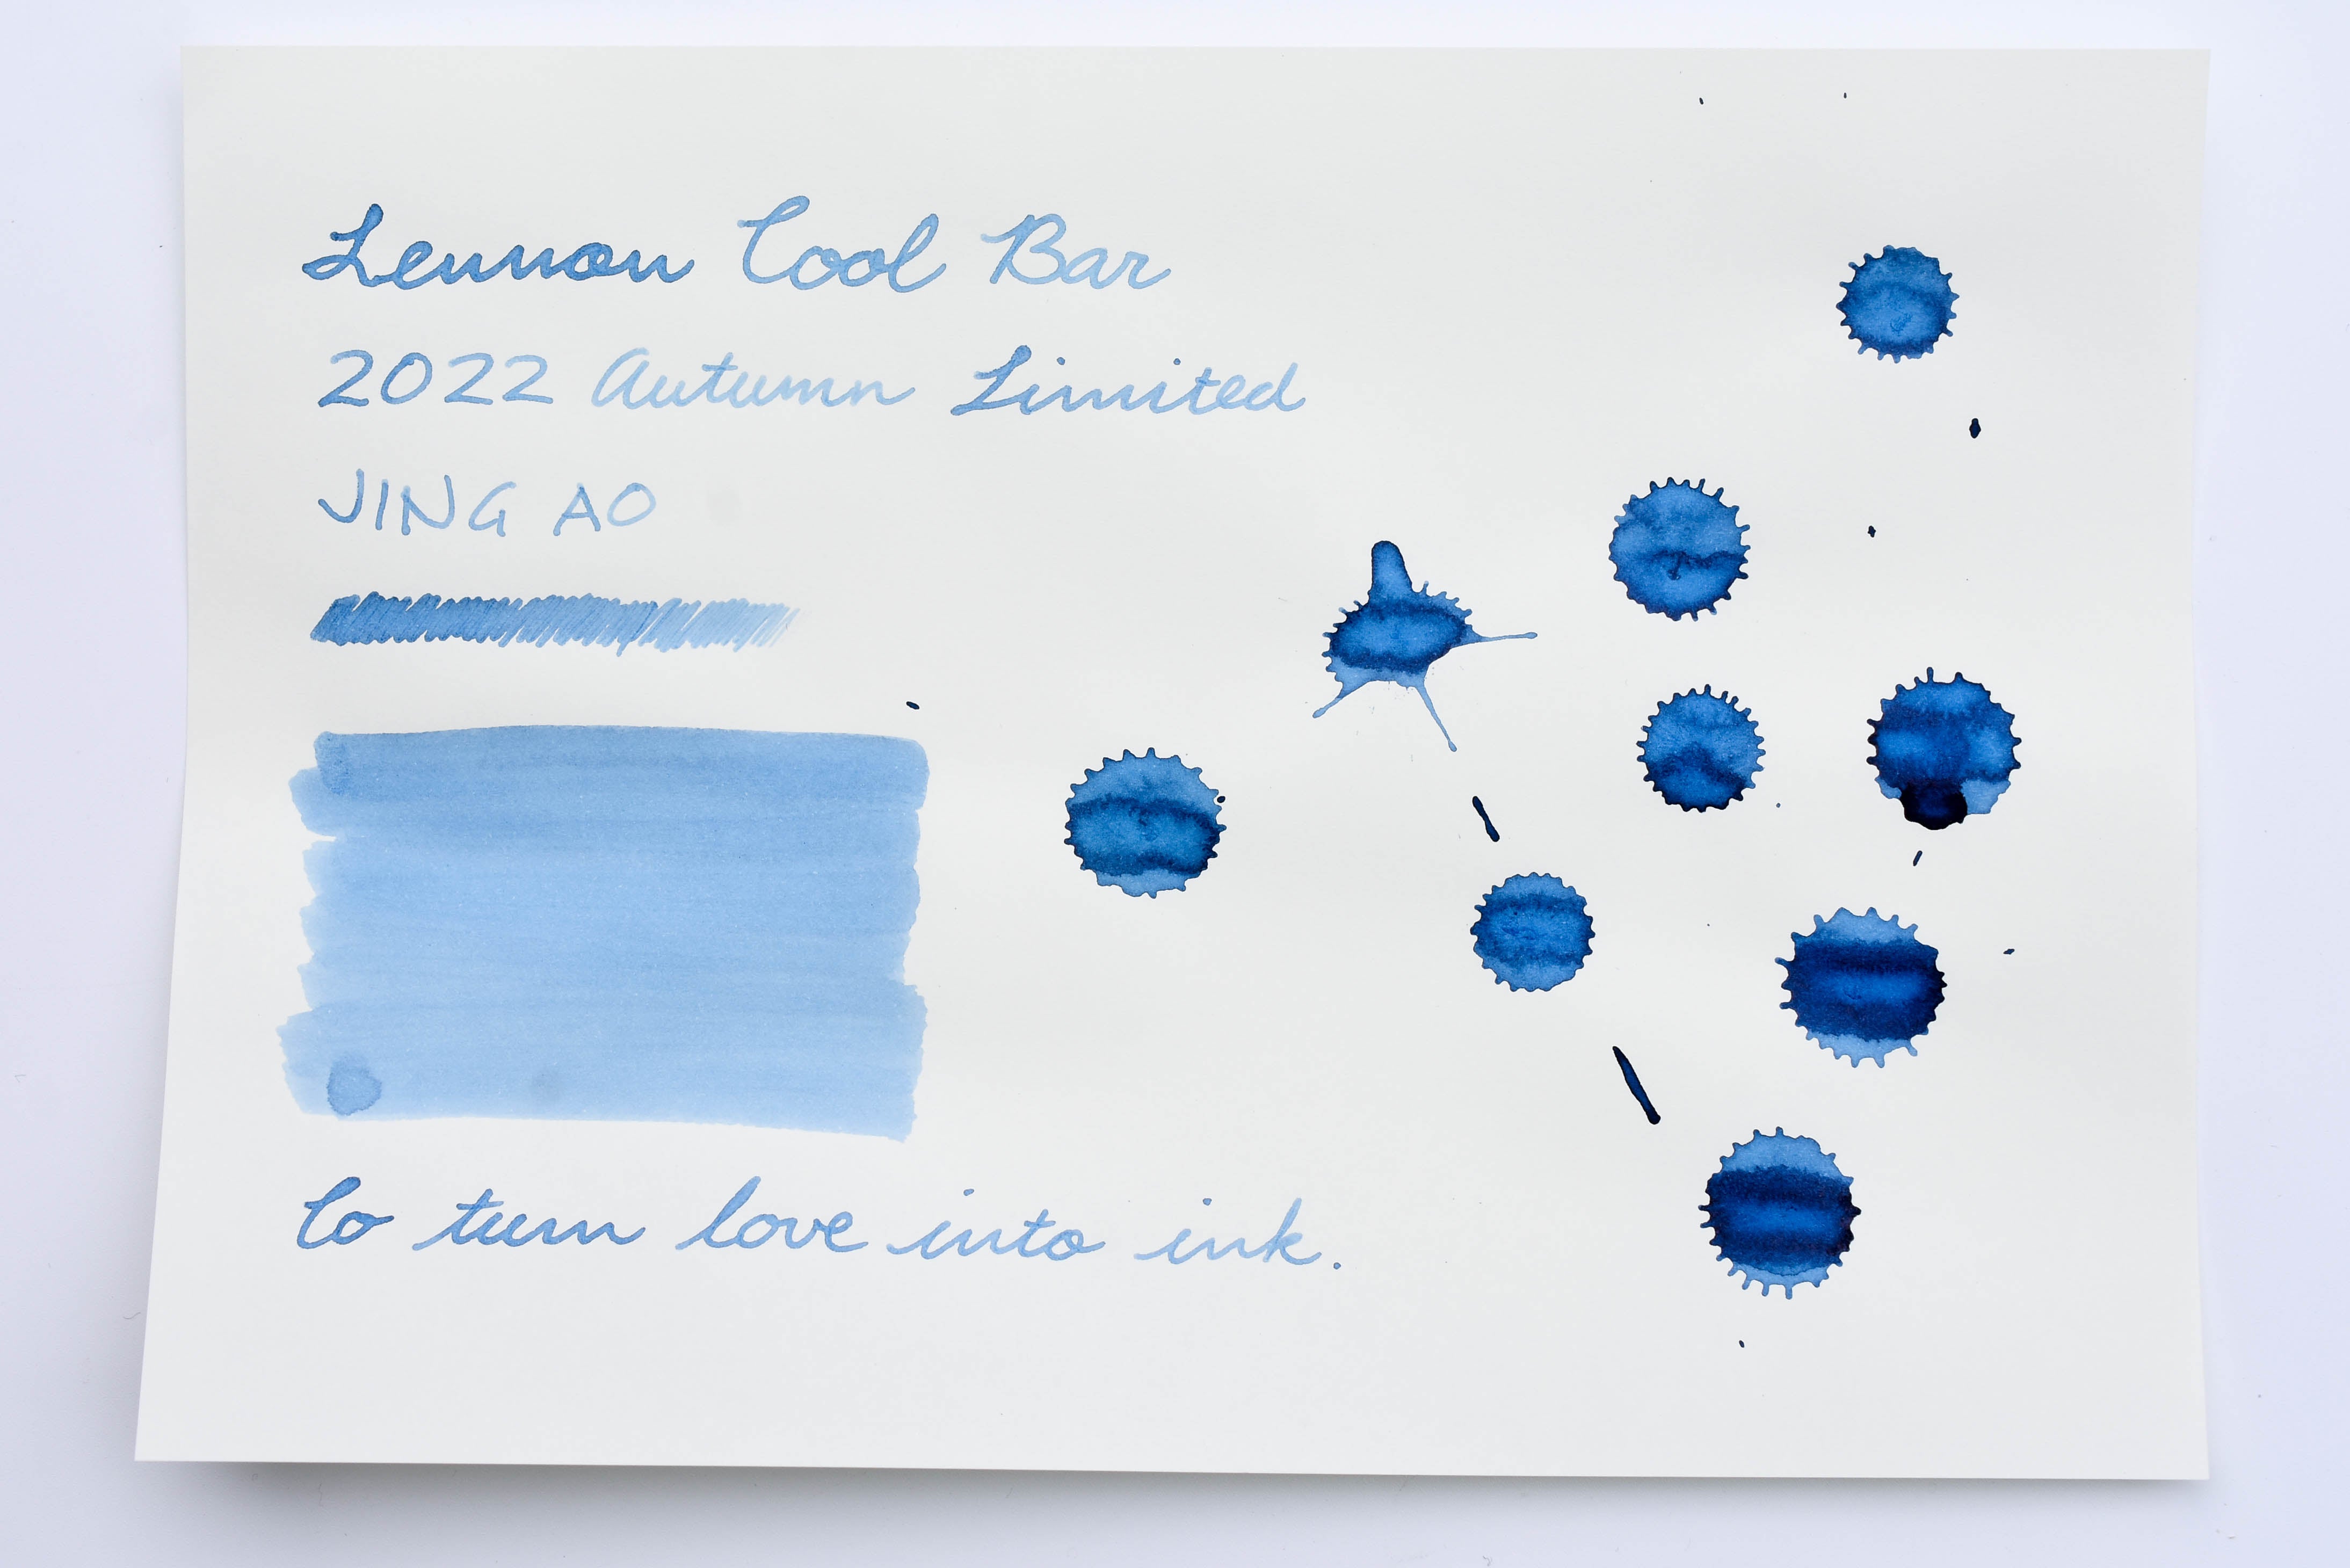 Lennon Tool Bar
2022 Autumn Limited
JING AO
To turn love into ink.